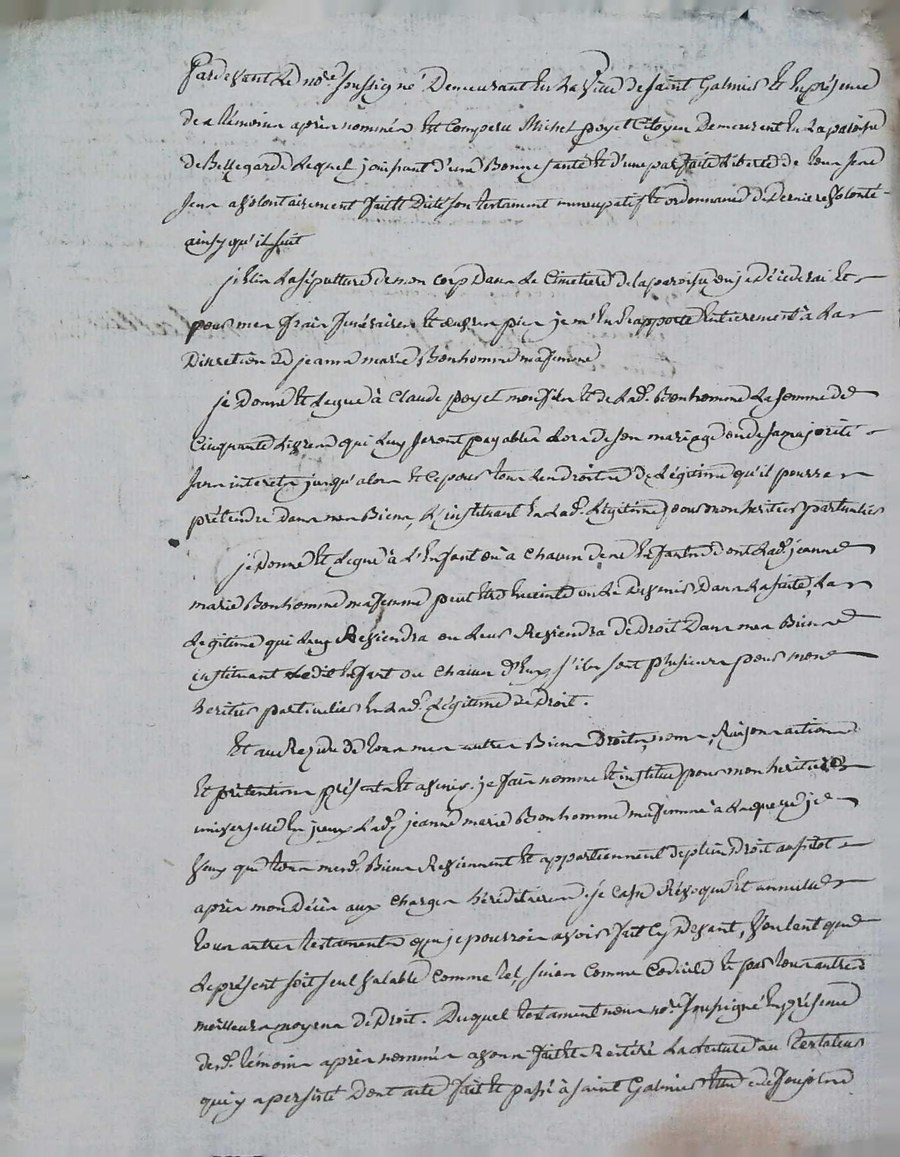 Pardevant Le no.re soussigné Demeurant En La Ville de saint Galmier Et En présence
de a témoins après nommés Est Comparu Michel poyet Citoyen Demeurant En La paroisse
de Bellegarde Lequel jouissant d'une Bonne santé Et d'une parfaite Liberté de tous sens
a volontairement fait Et Dicté son testament nuncupatif Et ordonnance de Derniere Volonté
ainsy qu'il suit
j'Elis La sépulture de mon corp Dans Le Cimetiere de la paroisse ou je Décéderai Et
pour mes frais funéraires Et œuvres pies je m'En Rapporte Entierement à La
Discretion de jeanne marie Bonhomme ma femme
je Donne Et Legue à Claude poyet mon fils Et de Lad. Bonhomme La somme de
Cinquante Livres qui Luy seront payables Lors de son mariage ou de sa majorité
sans interets jusqu'alors Et Ce pour tous Les droits de Légitime qu'il pourra
prétendre Dans mes Biens, L'instituant En Lad. Légitime pour mon heritier particulier
je Donne Et Legue à L'Enfant ou à Chacun des Enfants dont Lad. jeanne
marie Bonhomme ma femme peut Etre Enceinte ou Le Devenir Dans La suite, La
Légitime qui Luy Reviendra ou Leur Reviendra de Droit Dans mes Biens
instituant Ledit Enfant ou Chacun d'Eux s'ils sont plusieurs pour mes
heritiers particuliers En Lad. Légitime de Droit.
Et au Résidu de tous mes autres Biens Droits, noms, Raisons actions
Et prétentions présents Et avenir. je fais nomme Et institue pour mon heritiere
universelle Lad. jeanne marie Bonhomme ma femme à Laquelle je
Veux que tous mesd. Biens Reviennent Et appartiennent de plein Droit aussitot
après mon Décès aux Charges héréditaires. je Casse Révoque Et annulle
tous autres testaments que je pourrois avoir fait Cy Devant, Voulant que
Le présent soit seul Valable Comme tel, sinon Comme Codicile Et par tous autres
meilleurs moyens de Droit. Duquel testament nous no.re soussigné En présence
desd. témoins après nommés avons fait Et Réitéré La Lecture au testateur
qui y a persisté Dont acte fait Et passé à saint Galmier